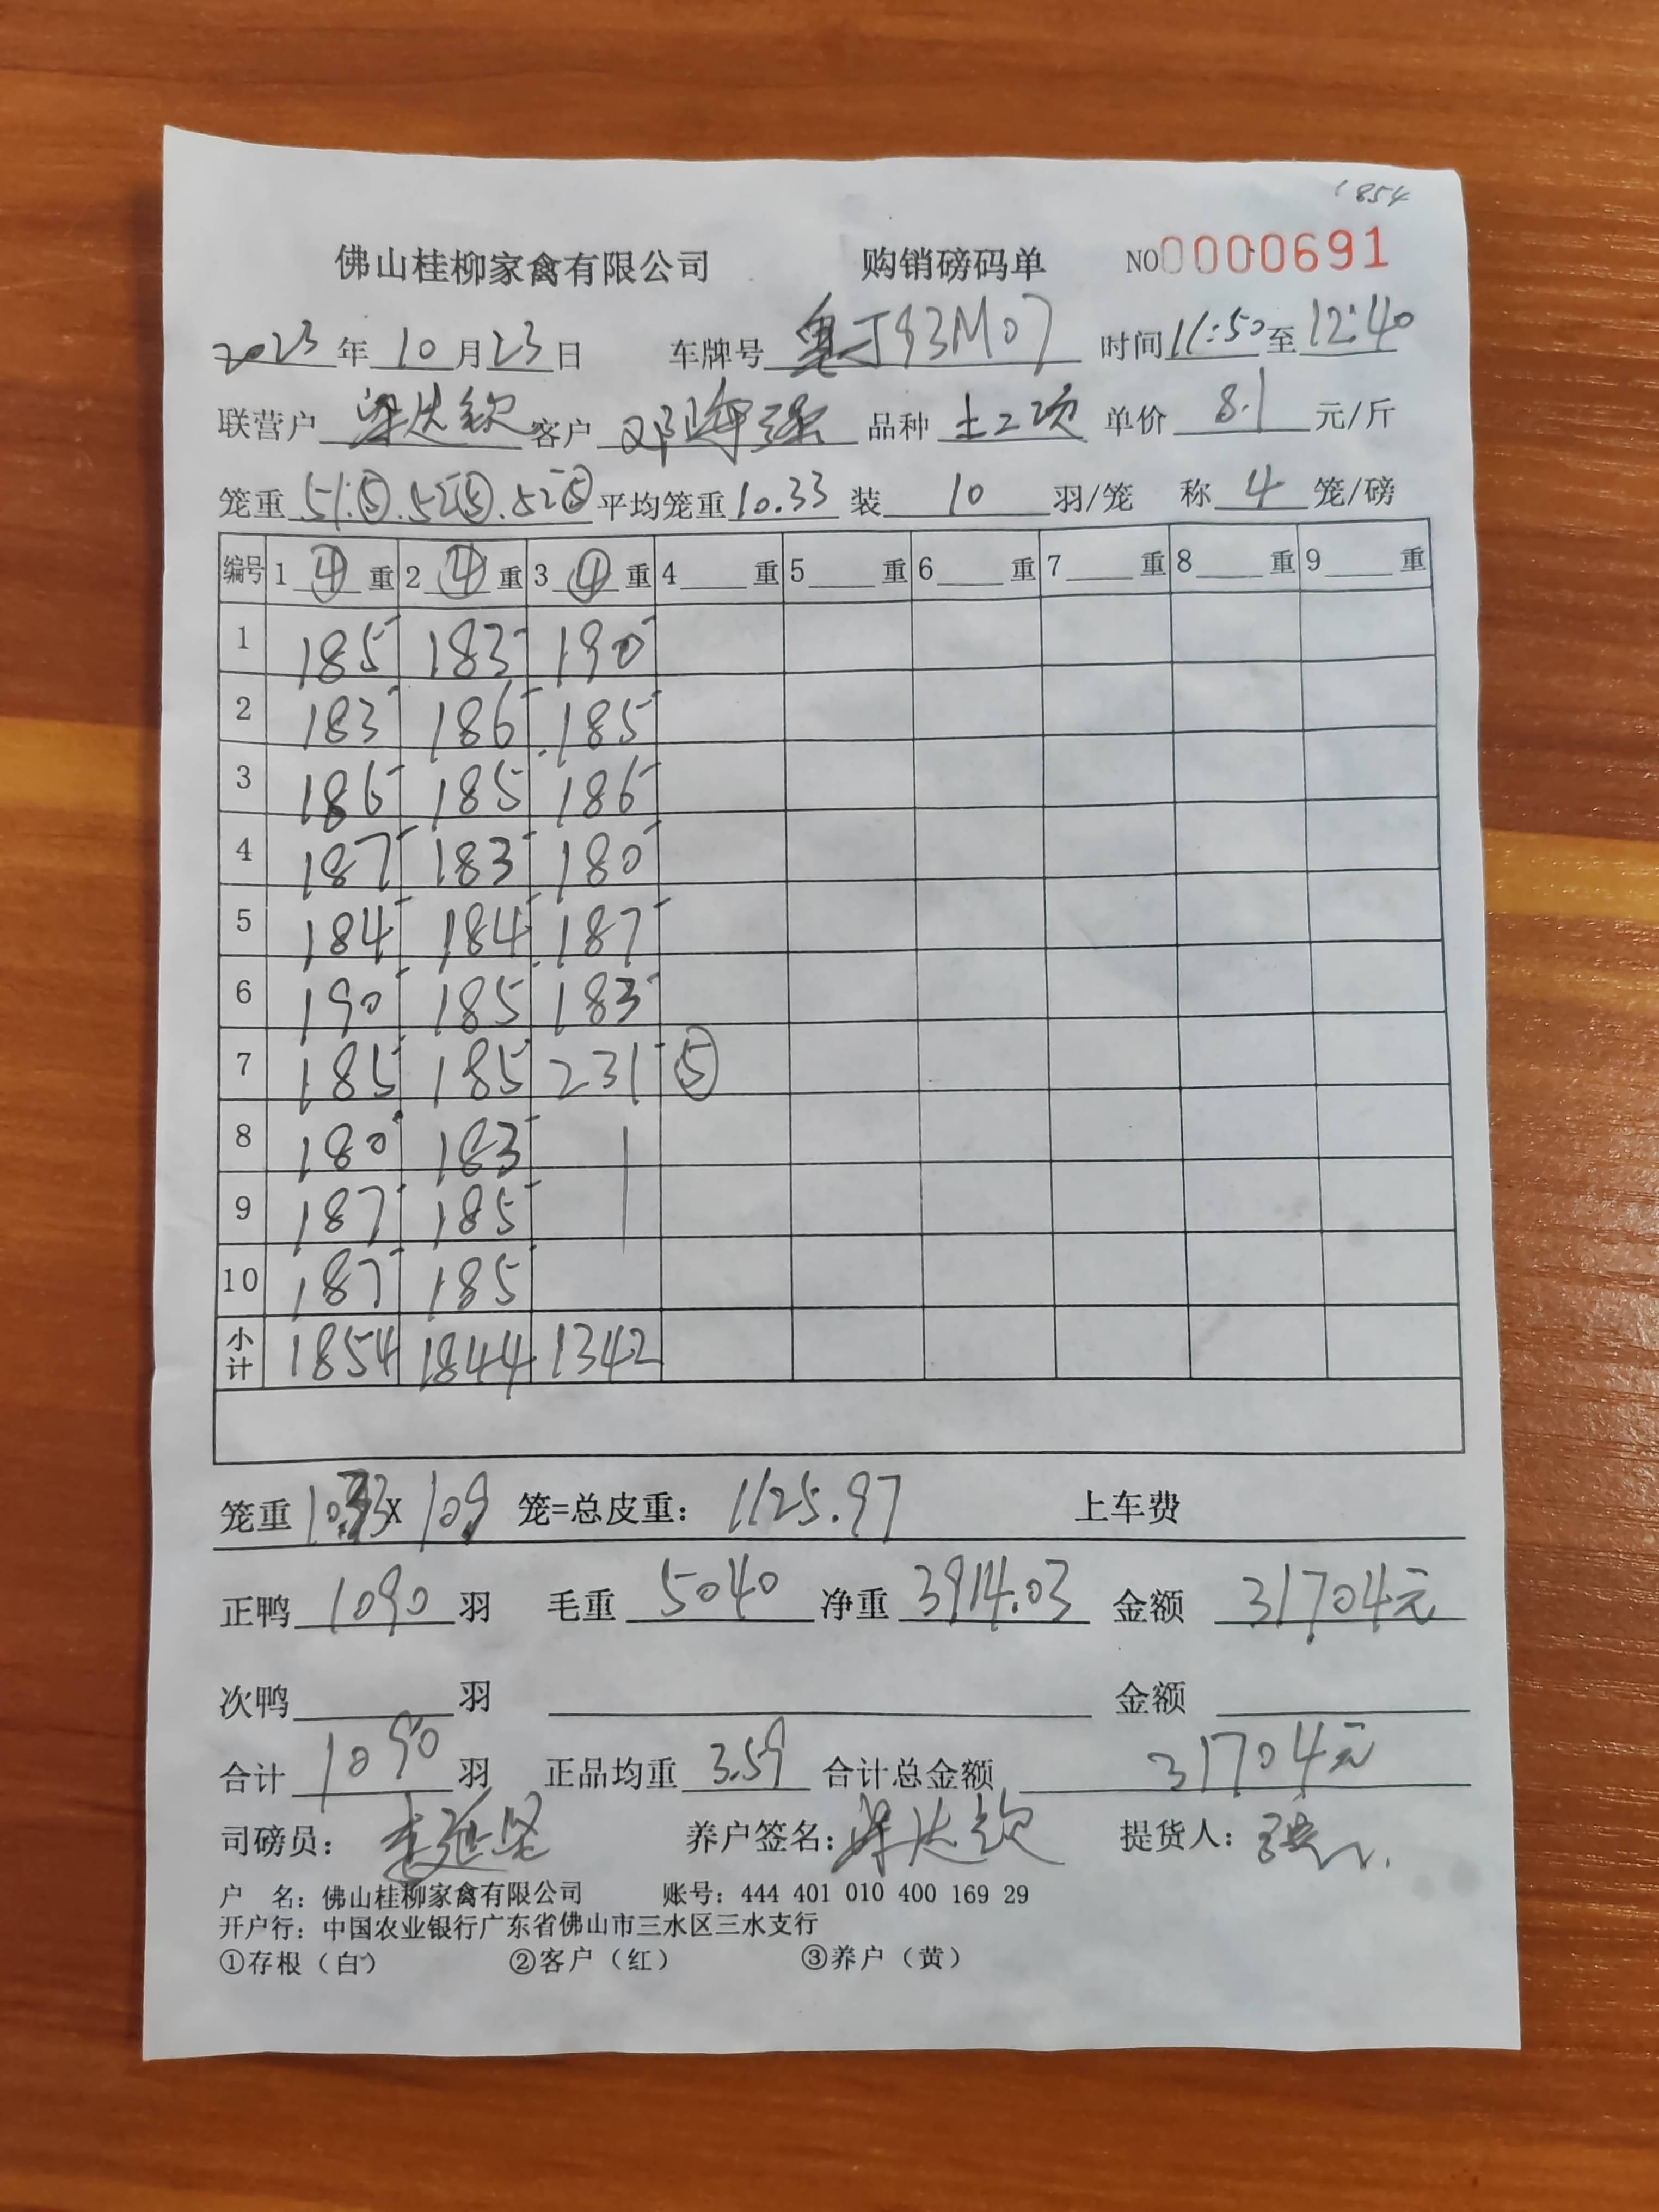 1854
佛山桂柳家禽有限公司 购销磅码单 NO0000691
2023年10月23日 车牌号粤J93M07 时间11:50至12:40
联营户梁达钦 客户邓海强 品种土二项 单价8.1元/斤
笼重51.⑤.52⑤.52⑤平均笼重10.33装10羽/笼 称4笼/磅
编号 1④重 2④重 3④重 4重 5重 6重 7重 8重 9重
1 185 183 190
2 183 186 185
3 186 185 186
4 187 183 180
5 184 184 187
6 190 185 183
7 185 185 231 ⑤
8 180 183
9 187 185
10 187 185
小计 1854 1844 1342
笼重10.33X109笼=总皮重：1125.97 上车费
正鸭1090羽 毛重5040净重3914.03 金额31704元
次鸭羽 金额
合计1090羽 正品均重3.59合计总金额31704元
司磅员： 养户签名：梁达钦 提货人：
户 名：佛山桂柳家禽有限公司 账号：444 401 010 400 169 29
开户行：中国农业银行广东省佛山市三水区三水支行
①存根（白） ②客户（红） ③养户（黄）